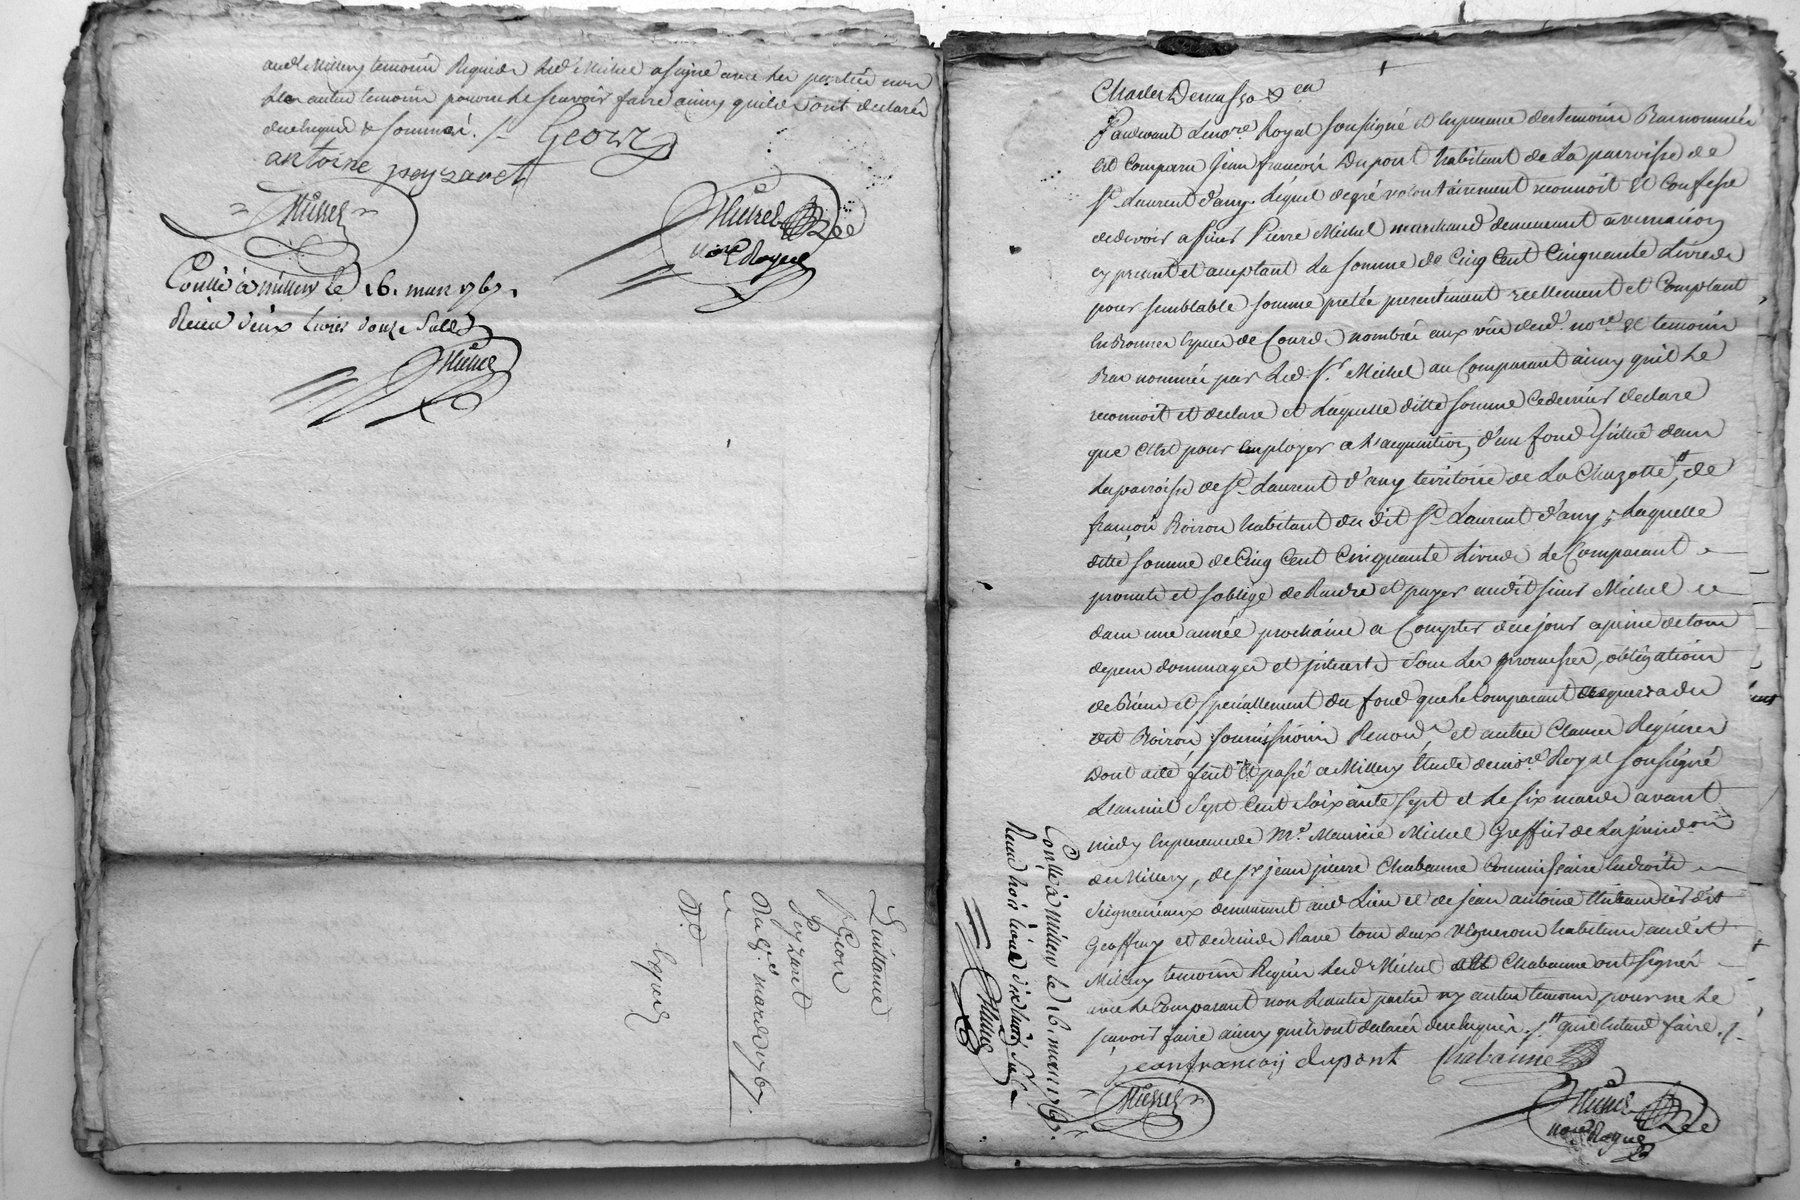 audt Millery temoins Requis led. Michel a signé avec les parties non
les autres temoins pour ne le scavoir faire ainsy quils ont declaré
de ce enquis & sommés. /.
Geory
antoine peyzaret
Michel
Michel
nore Royal
Conllé à millery le 16. mars 1767.
Reçu deux livres douze sols
Michel
Quittance
sr. Geon
Peyzaret
du 6e. mars 1767.
Par devant le nore. Royal soussigné et en presence des temoins Bas nommés
est comparu Jean françois Dupont habitant de la parroisse de
st. Laurent d'any. lequel de gré volontairement reconnoit et confesse
de devoir a sieur Pierre Michel marchand demeurant a
cy present et acceptant la somme de cinq cent cinquante livres
pour semblable somme pretée presentement reellement et comptant
en Bonnes especes de Cours nombrées aux vûe dud. nore. et temoins
Bas nommés par led. sr. Michel au comparant ainsy quil le
reconnoit et declare et laquelle ditte somme ce dernier declare
que c'est pour employer a l'acquisition d'un fond situé dans
la parroisse de st. Laurent d'any territoire de la Chazotte, de
françois Boiron habitant du dit st. Laurent d'any ; laquelle
ditte somme de cinq cent cinquante livres le comparant
promet et s'oblige de Rendre et payer audit sieur Michel
dans une année prochaine a compter de ce jour a peine de tous
depens dommages et interets sous les promesses, obligations
de Biens et speciallement du fond que le comparant acquerra du
dit Boiron soumissions Renons. et autres clauses Requises
Dont acte fait et passé a Millery Etude de nore. Royal soussigné
L'an mil sept cent soixante sept et le six mars avant
midy en presence de Me. Maurice Michel Greffier de la jurisdon
de Millery, de sr jean pierre Chabanne Commissaire en droits
seigneuriaux demeurant aud. Lieu et de jean antoine Thibaudier dit
Geoffray et de Rave tous deux vignerons habitans audit
Millery temoins Requis led. Michel et Chabanne ont signés
avec le Comparant non l'autre partie ny autres temoins pour ne le
scavoir faire ainsy quils ont declaré de ce enquis. /. quil entend faire. /.
jean françois dupont Chabanne
Michel
Michel
nore Royal
Conllé à millery le 16. mars 1767.
Reçu trois livres dix huit sols
Michel